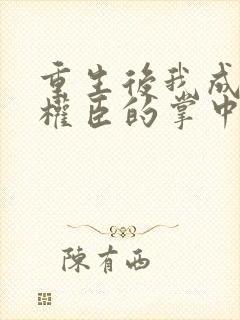 重生後我成
權臣的掌中
陳有西